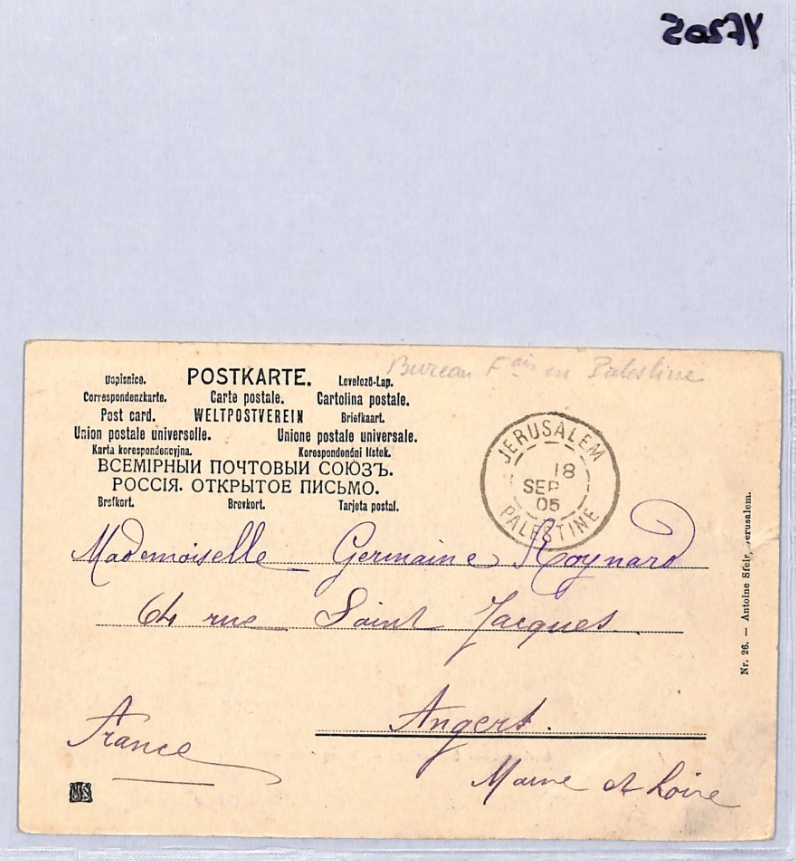 YF205
Bureau Fais en Palestine
Dopisnice. POSTKARTE. Levelező-Lap.
Correspondenzkarte. Carte postale. Cartolina postale.
Post card. WELTPOSTVEREIN Briefkaart.
Union postale universelle. Unione postale universale.
Karta korespondencyjna. Korespondenčni listok.
ВСЕМІРНЫЙ ПОЧТОВЫЙ СОЮЗЪ.
РОССІЯ. ОТКРЫТОЕ ПИСЬМО.
Brefkort. Brevkort. Tarjeta postal.
JERUSALEM
18
SEP
05
PALESTINE
Mademoiselle Germaine Roynard
64 rue Saint Jacques.
Angers.
France
Maine et Loire
Nr. 26. — Antoine Sfeir, Jerusalem.